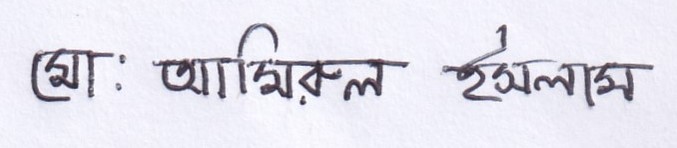 মো: আমিরুল ইসলাম